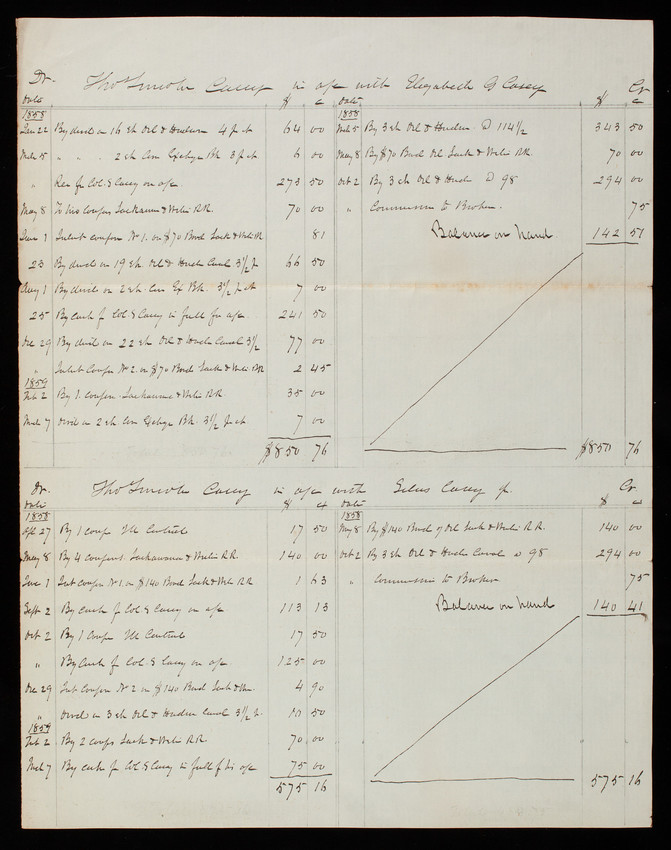 Dr. Thos Lincoln Casey in a/c with Elizabeth G Casey Cr
Date $ c
1858
Jan 22 By divd on 16 sh Del & Hudson 4 p ct 64 00
Mch 5 " " . 2 sh Am Exchge Bk 3 p ct 6 00
" Rec fr Col. S Casey on a/c 273 50
May 8 To two coupons Lackawana & Westn R.R. 70 00
June 1 Interst coupon No 1. on $70 Bond Lack & Westn RR 81
23 By divd on 19 sh Del & Huds Canal 3 1/2 p 66 50
Aug 1 By divid on 2 sh Am Ex Bk. 3 1/2 p ct 7 00
25 By cash f Col S Casey in full for a/c 241 50
Dec 29 By divid on 22 sh Del & Huds Canal 3 1/2 77 00
" Interst Coupon No 2. on $70 Bond Lack & Westn RR 2 45
1859
Feb 2 By 1. coupon Lackawana & Westn R.R. 35 00
Mch 7 Divd on 2 sh Am Exchge Bk. 3 1/2 p ct 7 00
$850 76
Date $ c
1858
Mch 5 By 3 sh Del & Hudson @ 114 1/2 343 50
May 8 By $70 Bond Del Lack & Westn R.R. 70 00
Oct 2 By 3 sh Del & Huds @ 98 294 00
" Commission to Broker. 75
Balance on hand 142 51
$850 76
Dr. Thos Lincoln Casey in a/c with Silas Casey Jr. Cr
Date $ c
1858
Apl 27 By 1 coup Ill Central 17 50
May 8 By 4 coupons Lackawana & Westn R.R. 140 00
June 1 Int coupon No 1. on $140 Bond Lack & Wstn R.R. 1 63
Sept 2 By cash f Col S Casey on a/c 113 13
Oct 2 By 1 Coup Ill Central 17 50
" By Cash f Col. S Casey on a/c 125 00
Dec 29 Int Coupon No 2 on $140 Bond Lack & Wn. 4 90
" Divd on 3 sh Del & Hudson Canal 3 1/2 p. 10 50
1859
Feb 2 By 2 coups Lack & Westn R.R. 70 00
Mch 7 By cash f Col S Casey in full f his a/c 75 00
575 16
Date $ c
1858
May 8 By $140 Bond of Del Lack & Westn R.R. 140 00
Oct 2 By 3 sh Del & Huds Canal @ 98 294 00
" Commission to Broker 75
Balance on hand 140 41
575 16